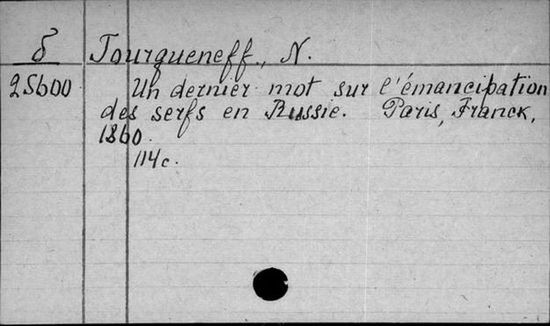 б Tourgueneff, N.
25600 Un dernier mot sur l'émancipation
des serfs en Russie. Paris, Franck,
1860.
114c.